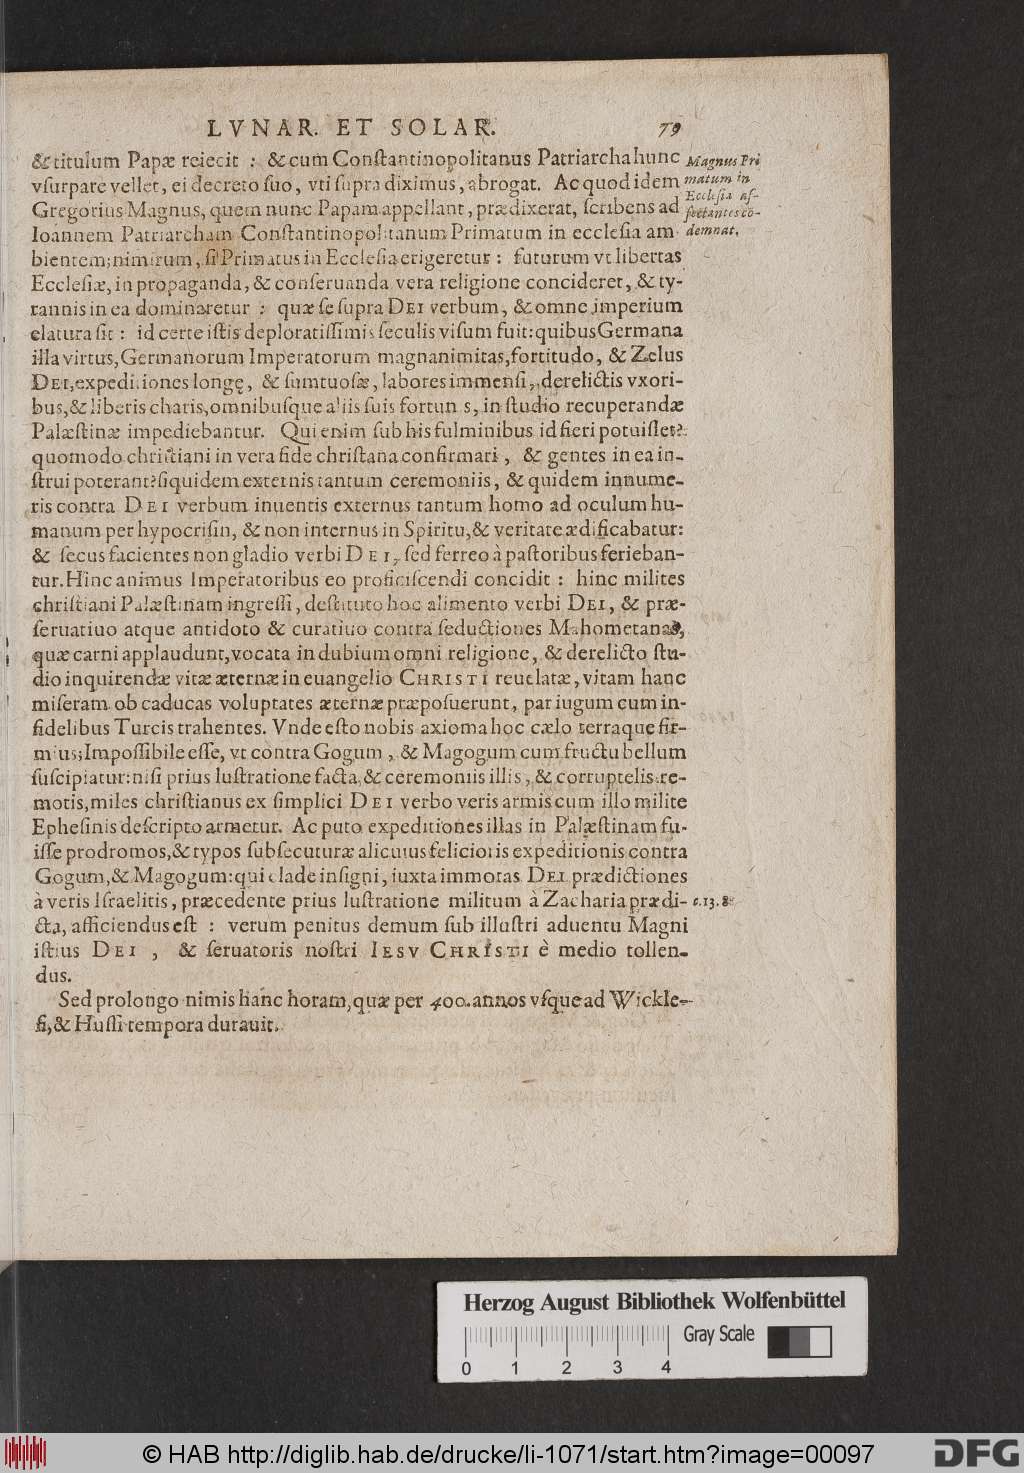 LVNAR. ET SOLAR. 79
& titulum Papæ reiecit : & cum Conſtantinopolitanus Patriarcha hunc
vſurpare vellet, ei decreto ſuo, vti ſupra diximus, abrogat. Ac quod idem
Gregorius Magnus, quem nunc Papam appellant, prædixerat, ſcribens ad
Ioannem Patriarcham Conſtantinopolitanum Primatum in ecclesia am
bientem; nimirum, ſi Primatus in Eccleſia erigeretur : futurum vt libertas
Eccleſiæ, in propaganda, & conſeruanda vera religione concideret, & ty-
rannis in ea dominaretur : quæ ſe ſupra DEI verbum, & omne imperium
elatura ſit : id certe iſtis deploratiſſimis ſeculis viſum fuit: quibus Germana
illa virtus, Germanorum Imperatorum magnanimitas, fortitudo, & Zelus
DEI, expeditiones longę, & ſumtuoſæ, labores immenſi, derelictis vxori-
bus, & liberis charis, omnibuſque aliis ſuis fortunis, in ſtudio recuperandæ
Palæſtinæ impediebantur. Qui enim ſub his fulminibus id fieri potuiſſet?
quomodo chriſtiani in vera fide chriſtana confirmari, & gentes in ea in-
ſtrui poterant? ſiquidem externis tantum ceremoniis, & quidem innume-
ris contra DEI verbum inuentis externus tantum homo ad oculum hu-
manum per hypocriſin, & non internus in Spiritu, & veritate ædificabatur:
& ſecus facientes non gladio verbi DEI, ſed ferreo à paſtoribus ferieban-
tur. Hinc animus Imperatoribus eo proficiſcendi concidit : hinc milites
chriſtiani Palæſtinam ingreſſi, deſtituto hoc alimento verbi DEI, & præ-
ſeruatiuo atque antidoto & curatiuo contra ſeductiones Mahometanas,
quæ carni applaudunt, vocata in dubium omni religione, & derelicto ſtu-
dio inquirendæ vitæ æternæ in euangelio CHRISTI reuelatæ, vitam hanc
miſeram ob caducas voluptates æternæ præpoſuerunt, par iugum cum in-
fidelibus Turcis trahentes. Vnde eſto nobis axioma hoc cælo terraque fir-
mius; Impoſſibile eſſe, vt contra Gogum, & Magogum cum fructu bellum
ſuſcipiatur: niſi prius luſtratione facta, & ceremoniis illis, & corruptelis re-
motis, miles chriſtianus ex ſimplici DEI verbo veris armis cum illo milite
Epheſinis deſcripto armetur. Ac puto expeditiones illas in Palæſtinam fu-
iſſe prodromos, & typos ſubſecuturæ alicuius felicioris expeditionis contra
Gogum, & Magogum: qui clade inſigni, iuxta immotas DEI prædictiones
à veris Iſraelitis, præcedente prius luſtratione militum à Zacharia prædi-
cta, afficiendus eſt : verum penitus demum ſub illuſtri aduentu Magni
iſtius DEI, & ſeruatoris noſtri IESV CHRISTI è medio tollen-
dus.
Sed prolongo nimis hanc horam, quæ per 400. annos vſque ad Wickle-
fi, & Huſſi tempora durauit.
Magnus Pri
matum in
Eccleſia af-
fectantes cō-
demnat.
c. 13. 8.
Herzog August Bibliothek Wolfenbüttel
Gray Scale
0 1 2 3 4
© HAB http://diglib.hab.de/drucke/li-1071/start.htm?image=00097
DFG